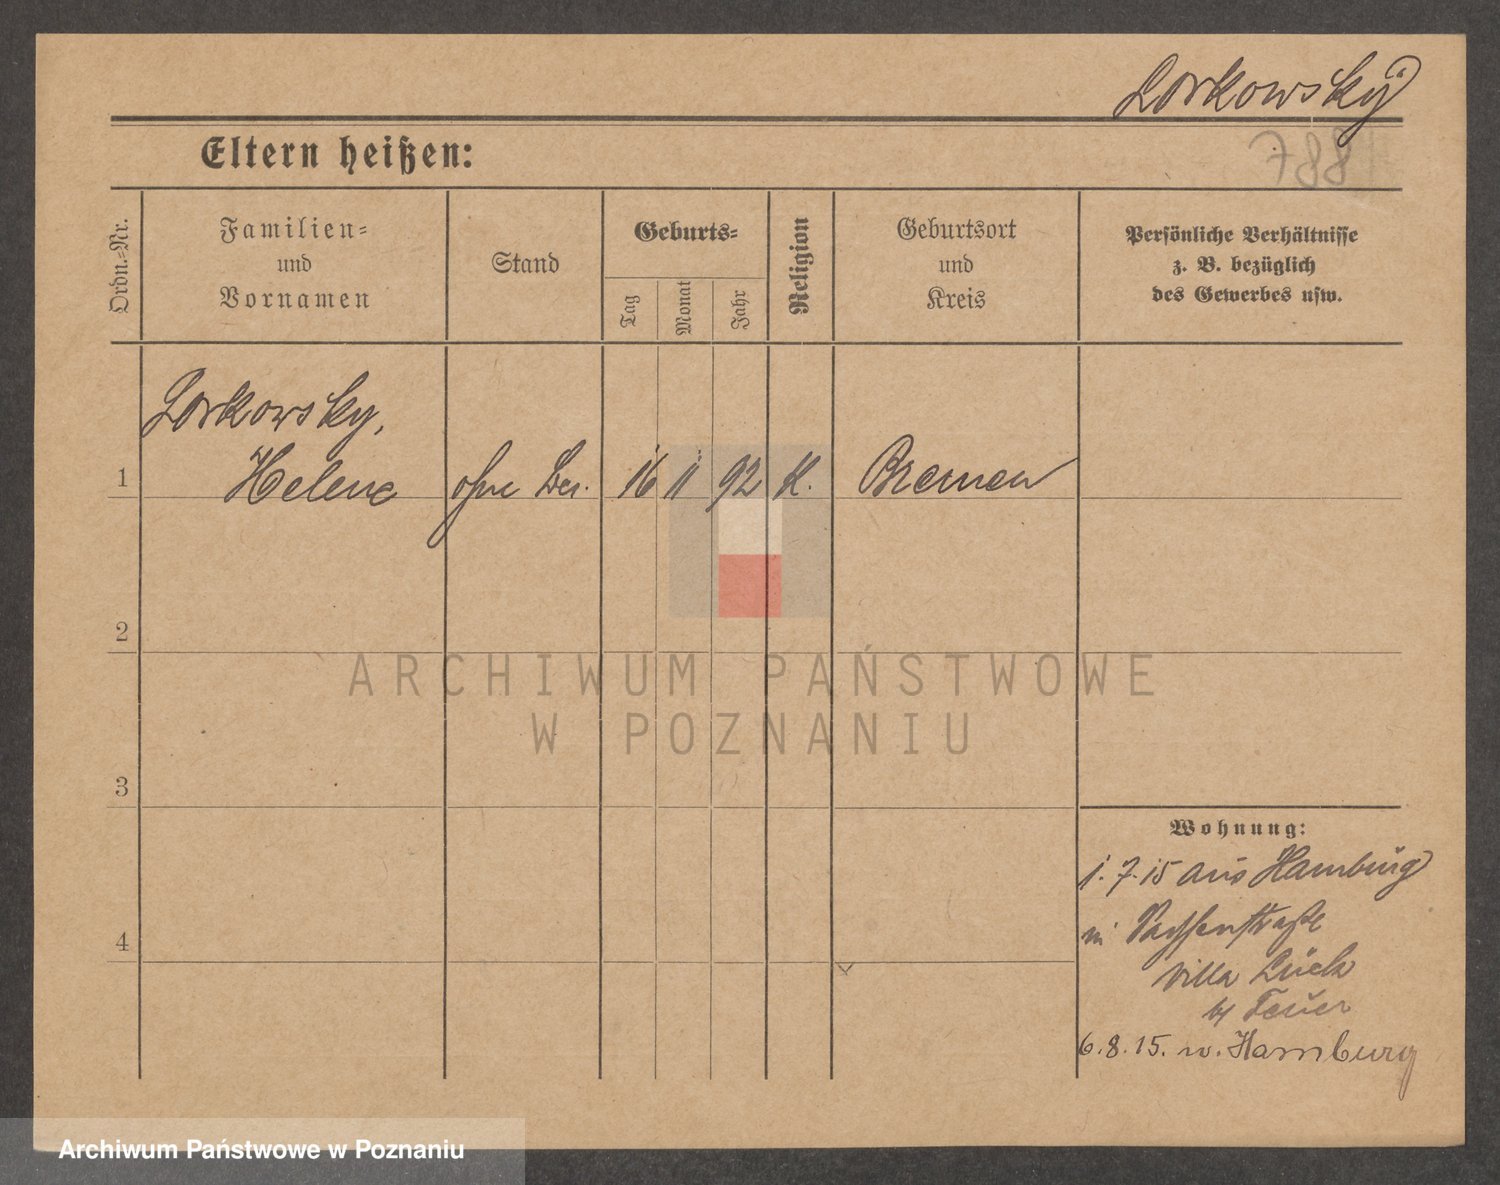 Lorkowsky
Eltern heißen:
Ordn.-Nr.
Familien-
und
Vornamen
Stand
Geburts-
Tag
Monat
Jahr
Religion
Geburtsort
und
Kreis
Persönliche Verhältnisse
z. B. bezüglich
des Gewerbes usw.
Lorkowsky,
1 Helene ohne Ber. 16 11 92 K. Bremen
2
ARCHIWUM PAŃSTWOWE
W POZNANIU
3
Wohnung:
1.7.15 aus Hamburg
in
4
Villa Lück
by Feuer
6.8.15. n. Hamburg
Archiwum Państwowe w Poznaniu